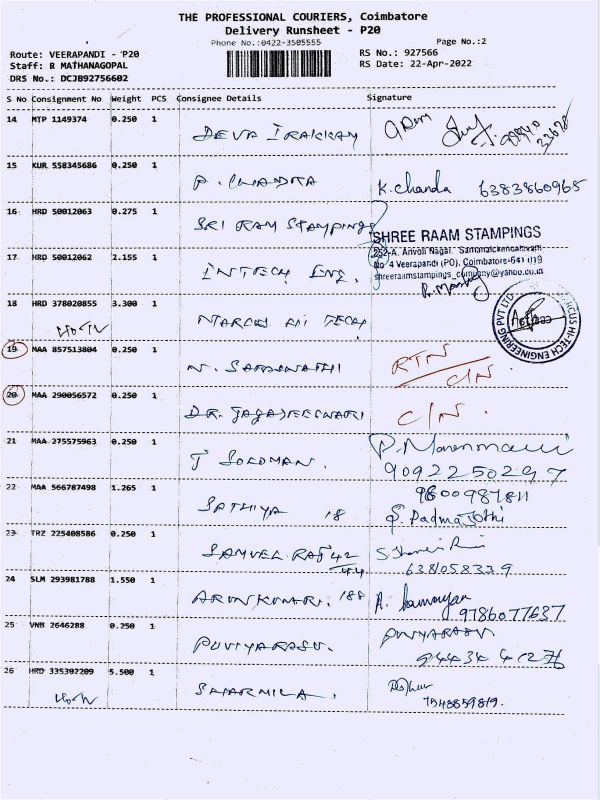 THE PROFESSIONAL COURIERS, Coimbatore
Delivery Runsheet - P20
Phone No.:0422-3505555
Page No.:2
Route: VEERAPANDI - P20
RS No.: 927566
Staff: R MATHANAGOPAL
RS Date: 22-Apr-2022
DRS No.: DCJB92756602
S No Consignment No Weight PCS Consignee Details Signature
14 MTP 1149374 0.250 1 DEVA IRAKKAM
15 KUR 558345686 0.250 1 P. CHANDRA K. Chanda 6383860965
16 HRD 50012063 0.275 1 SRI RAM STAMPINGS
SHREE RAAM STAMPINGS
252-A, Anvoli Nagar,
No 4 Veerapandi (PO), Coimbatore-641 019
shreeraamstampings_company@yahoo.co.in
17 HRD 50012062 2.155 1 INTECH ENG.
18 HRD 378020855 3.300 1 HI TECH
MARCUS HI-TECH ENGINEERING PVT LTD
19 MAA 857513804 0.250 1 N. RTN
C/N.
20 MAA 290056572 0.250 1 DR. JAGADEESWARI C/N.
21 MAA 275575963 0.250 1 J SOLOMAN.
9092250297
22 MAA 566787498 1.265 1 SATHIYA 18 9800987811
S. Padma Jothi
23 TRZ 225408586 0.250 1 SAMVEL RAJ 42
6381058339
24 SLM 293981788 1.550 1 ARUNKUMARI. 188 A.
9786077637
25 VNB 2646288 0.250 1 PUVIYARASU. PUVIYARASU
26 HRD 335302209 5.500 1 SHARMILA.
7548859819.